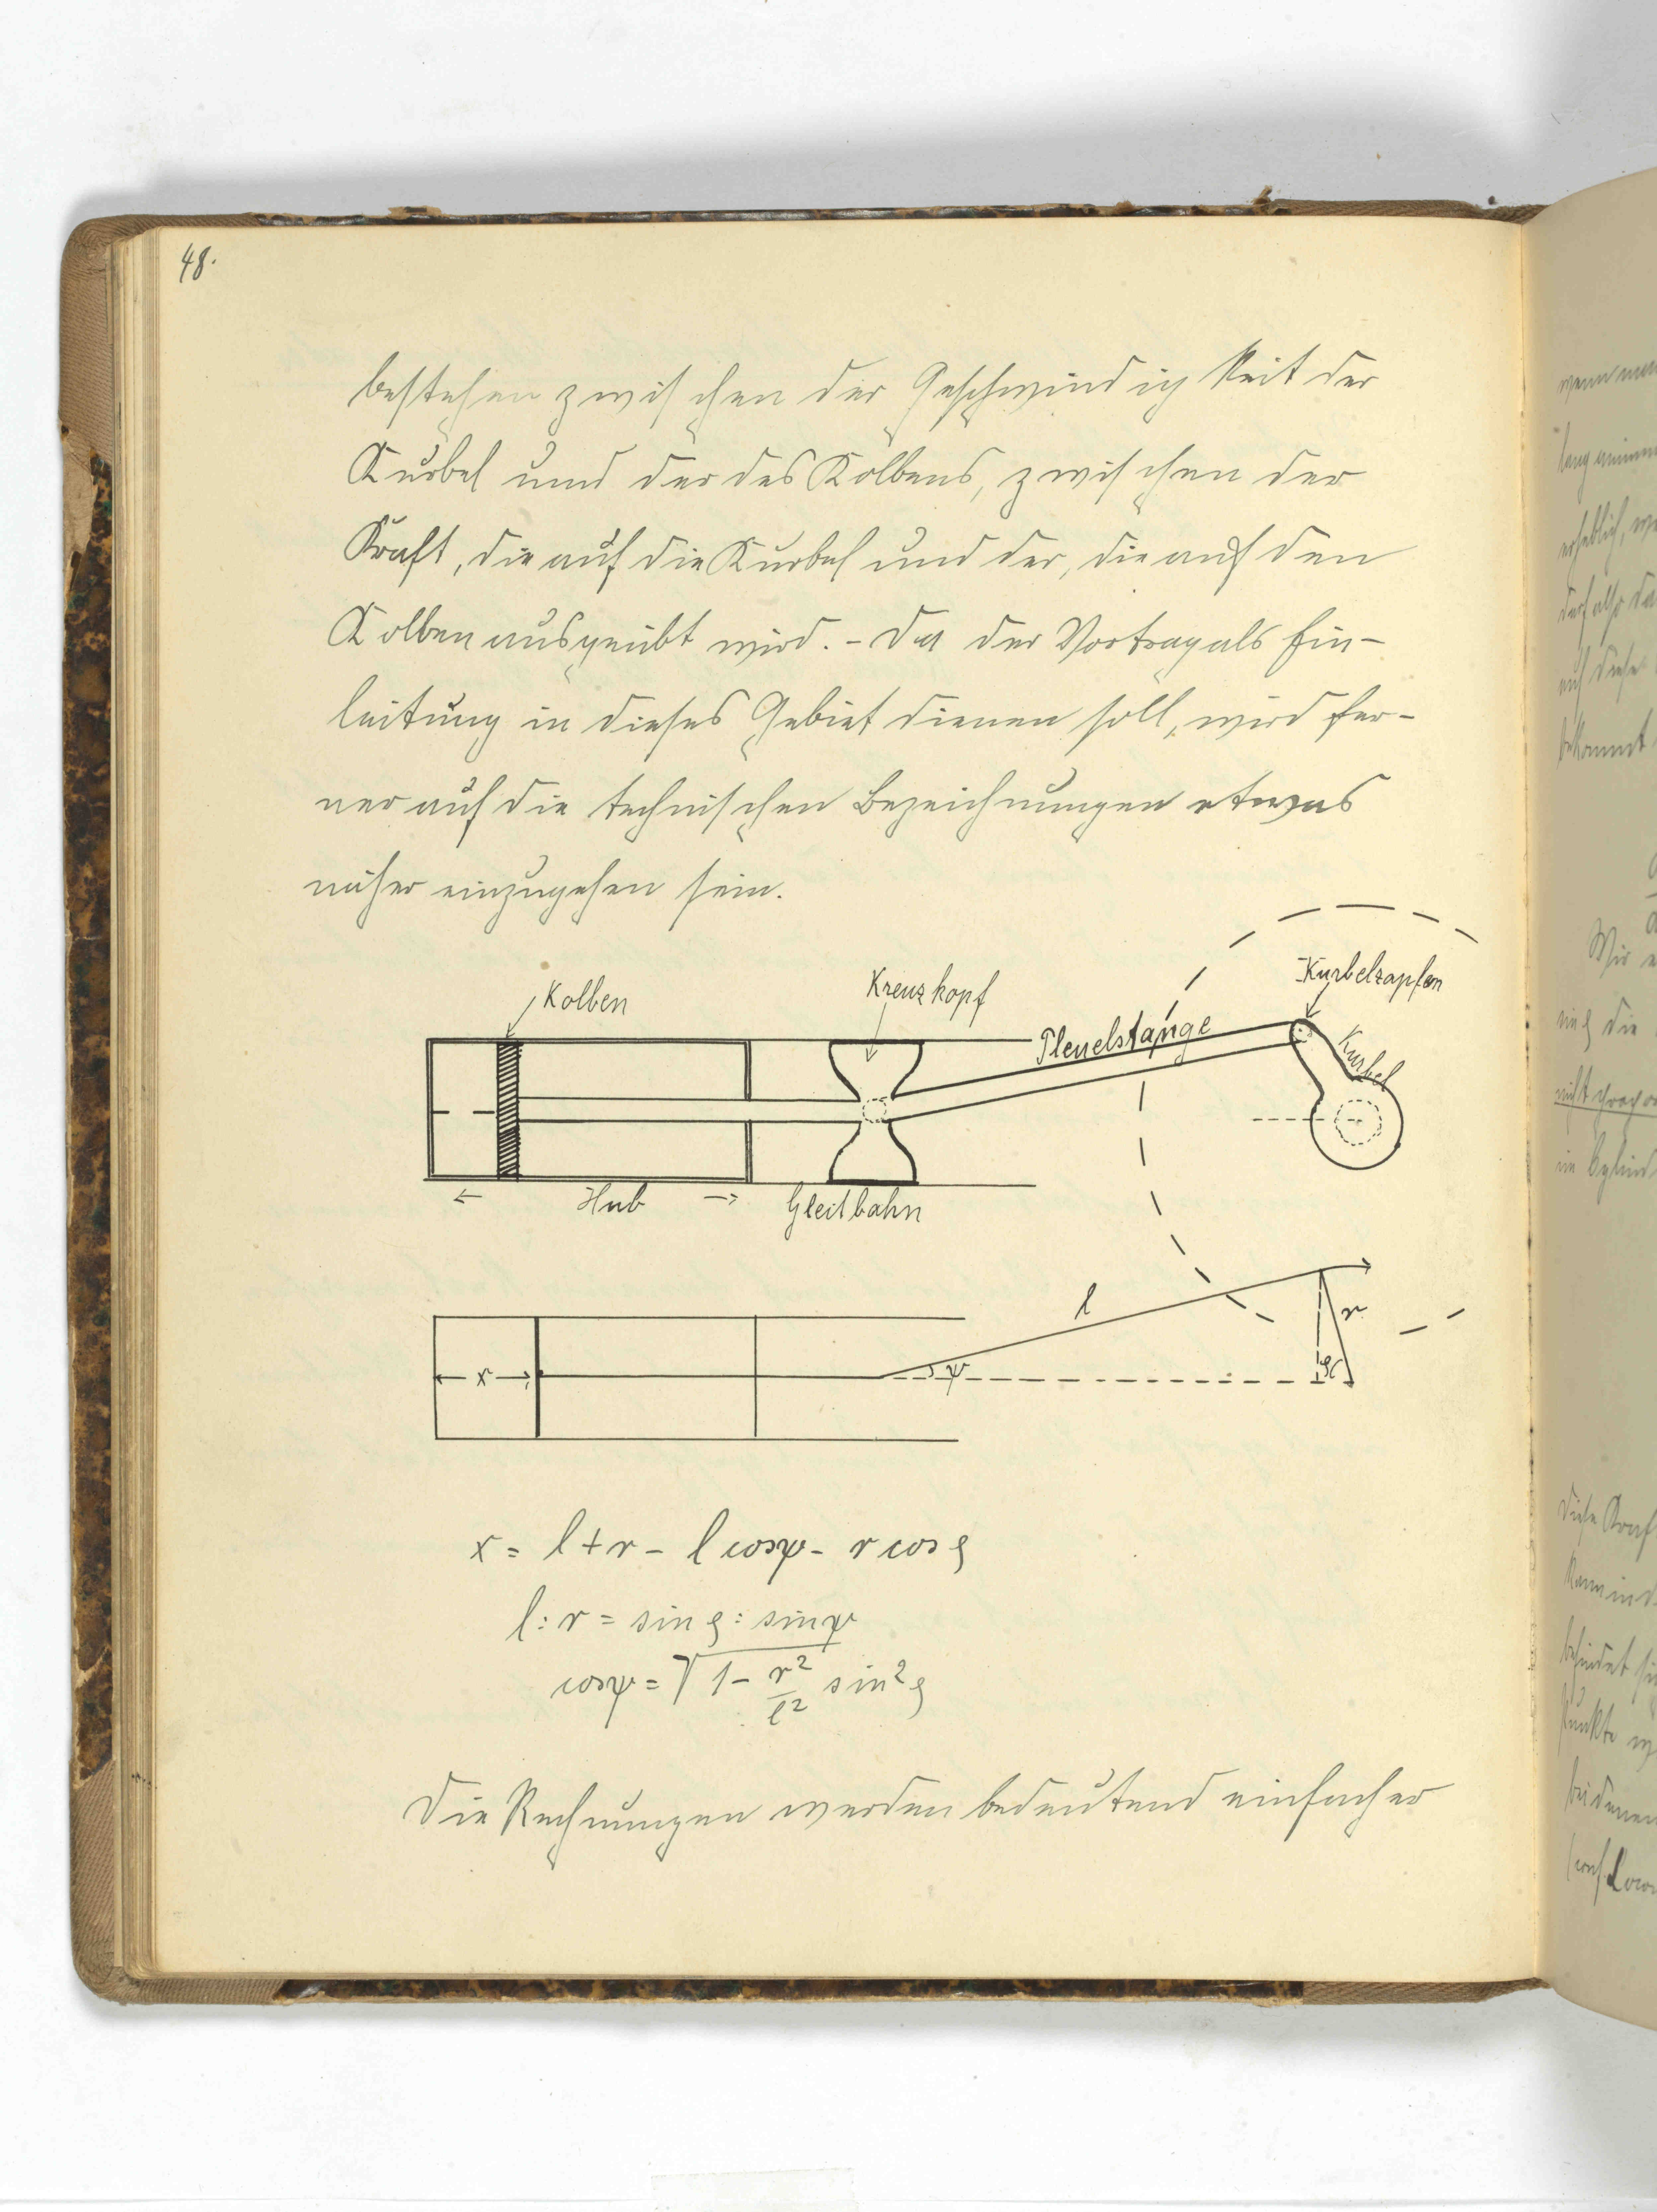 48.
bestehen zwischen der Geschwindigkeit der
Kurbel und der des Kolbens, zwischen der
Kraft, die auf die Kurbel und der, die auf den
Kolben ausgeübt wird. – Da der Vortrag als Ein-
leitung in dieses Gebiet dienen soll, wird fer-
ner auf die technischen Bezeichnungen etwas
näher einzugehen sein.
Kolben
Kreuzkopf
Kurbelzapfen
Pleuelstange
Kurbel
← Hub →
Gleitbahn
l
r
x
ψ
φ
x = l + r - l cosψ - r cosφ
l : r = sinφ : sinψ
cosψ = √1 - r²/l² sin²φ
Die Rechnungen werden bedeutend einfacher
wenn man
auf diese
bekommt
Wir
die
Diese Kraf
kann in d
befindet si
Punkte
bei denen